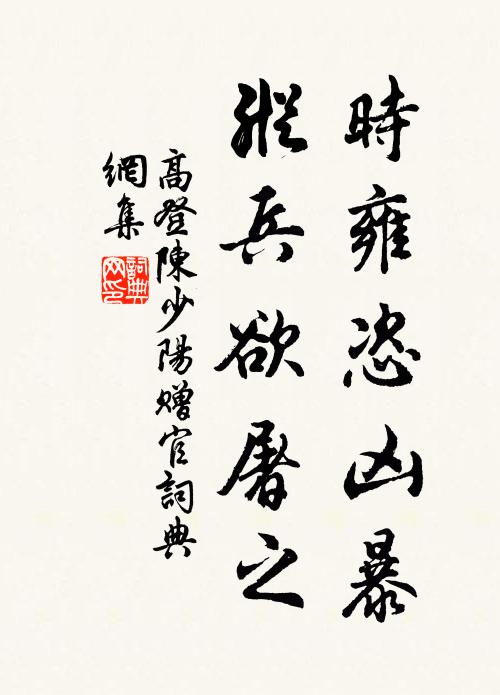 時雍恣凶暴
縱兵欲屠之
高登陳少陽贈官詞典
網集
詞典網印